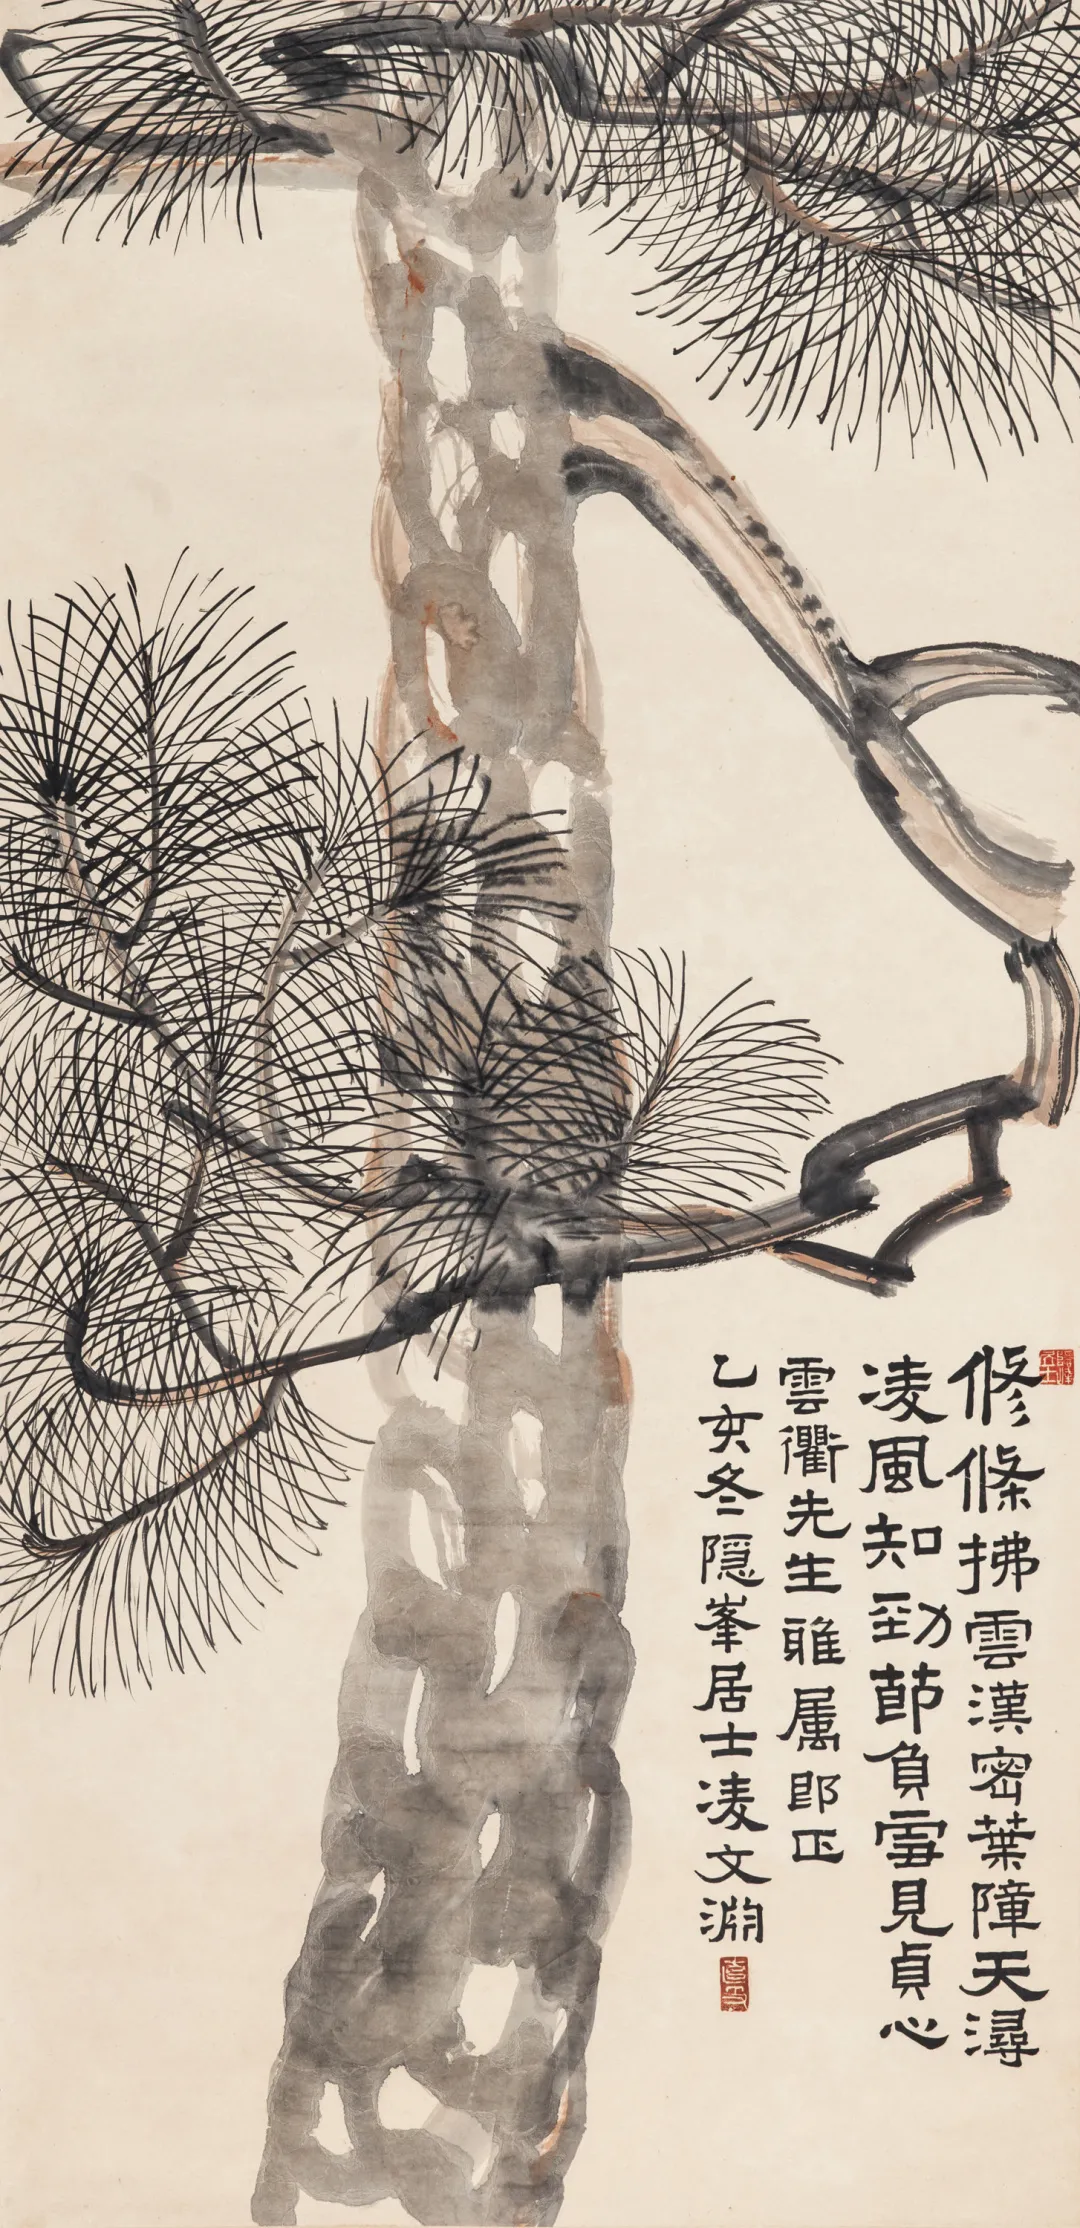 修條拂雲漢密葉障天潯
凌風知勁節負雪見貞心
雲衢先生雅属郎正
乙亥冬隐峯居士凌文淵